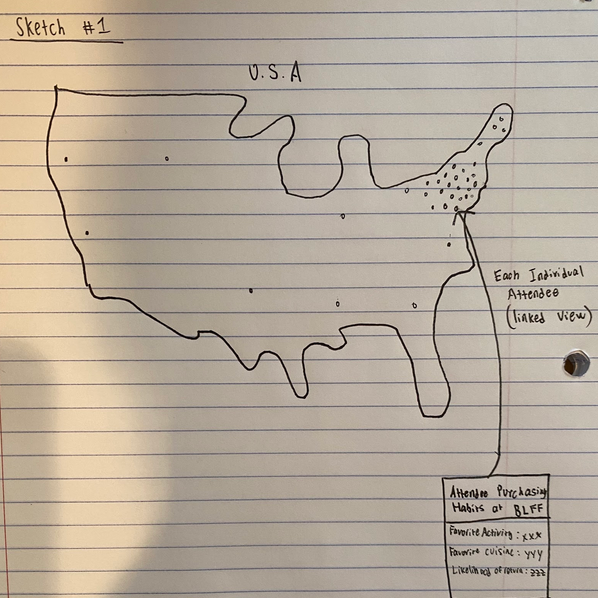 Sketch #1
U.S.A
Each Individual
Attendee
(linked view)
Attendee Purchasing
Habits at BLFF
Favorite Activity : xxx
Favorite cuisine : yyy
Likelihood of return : zzz